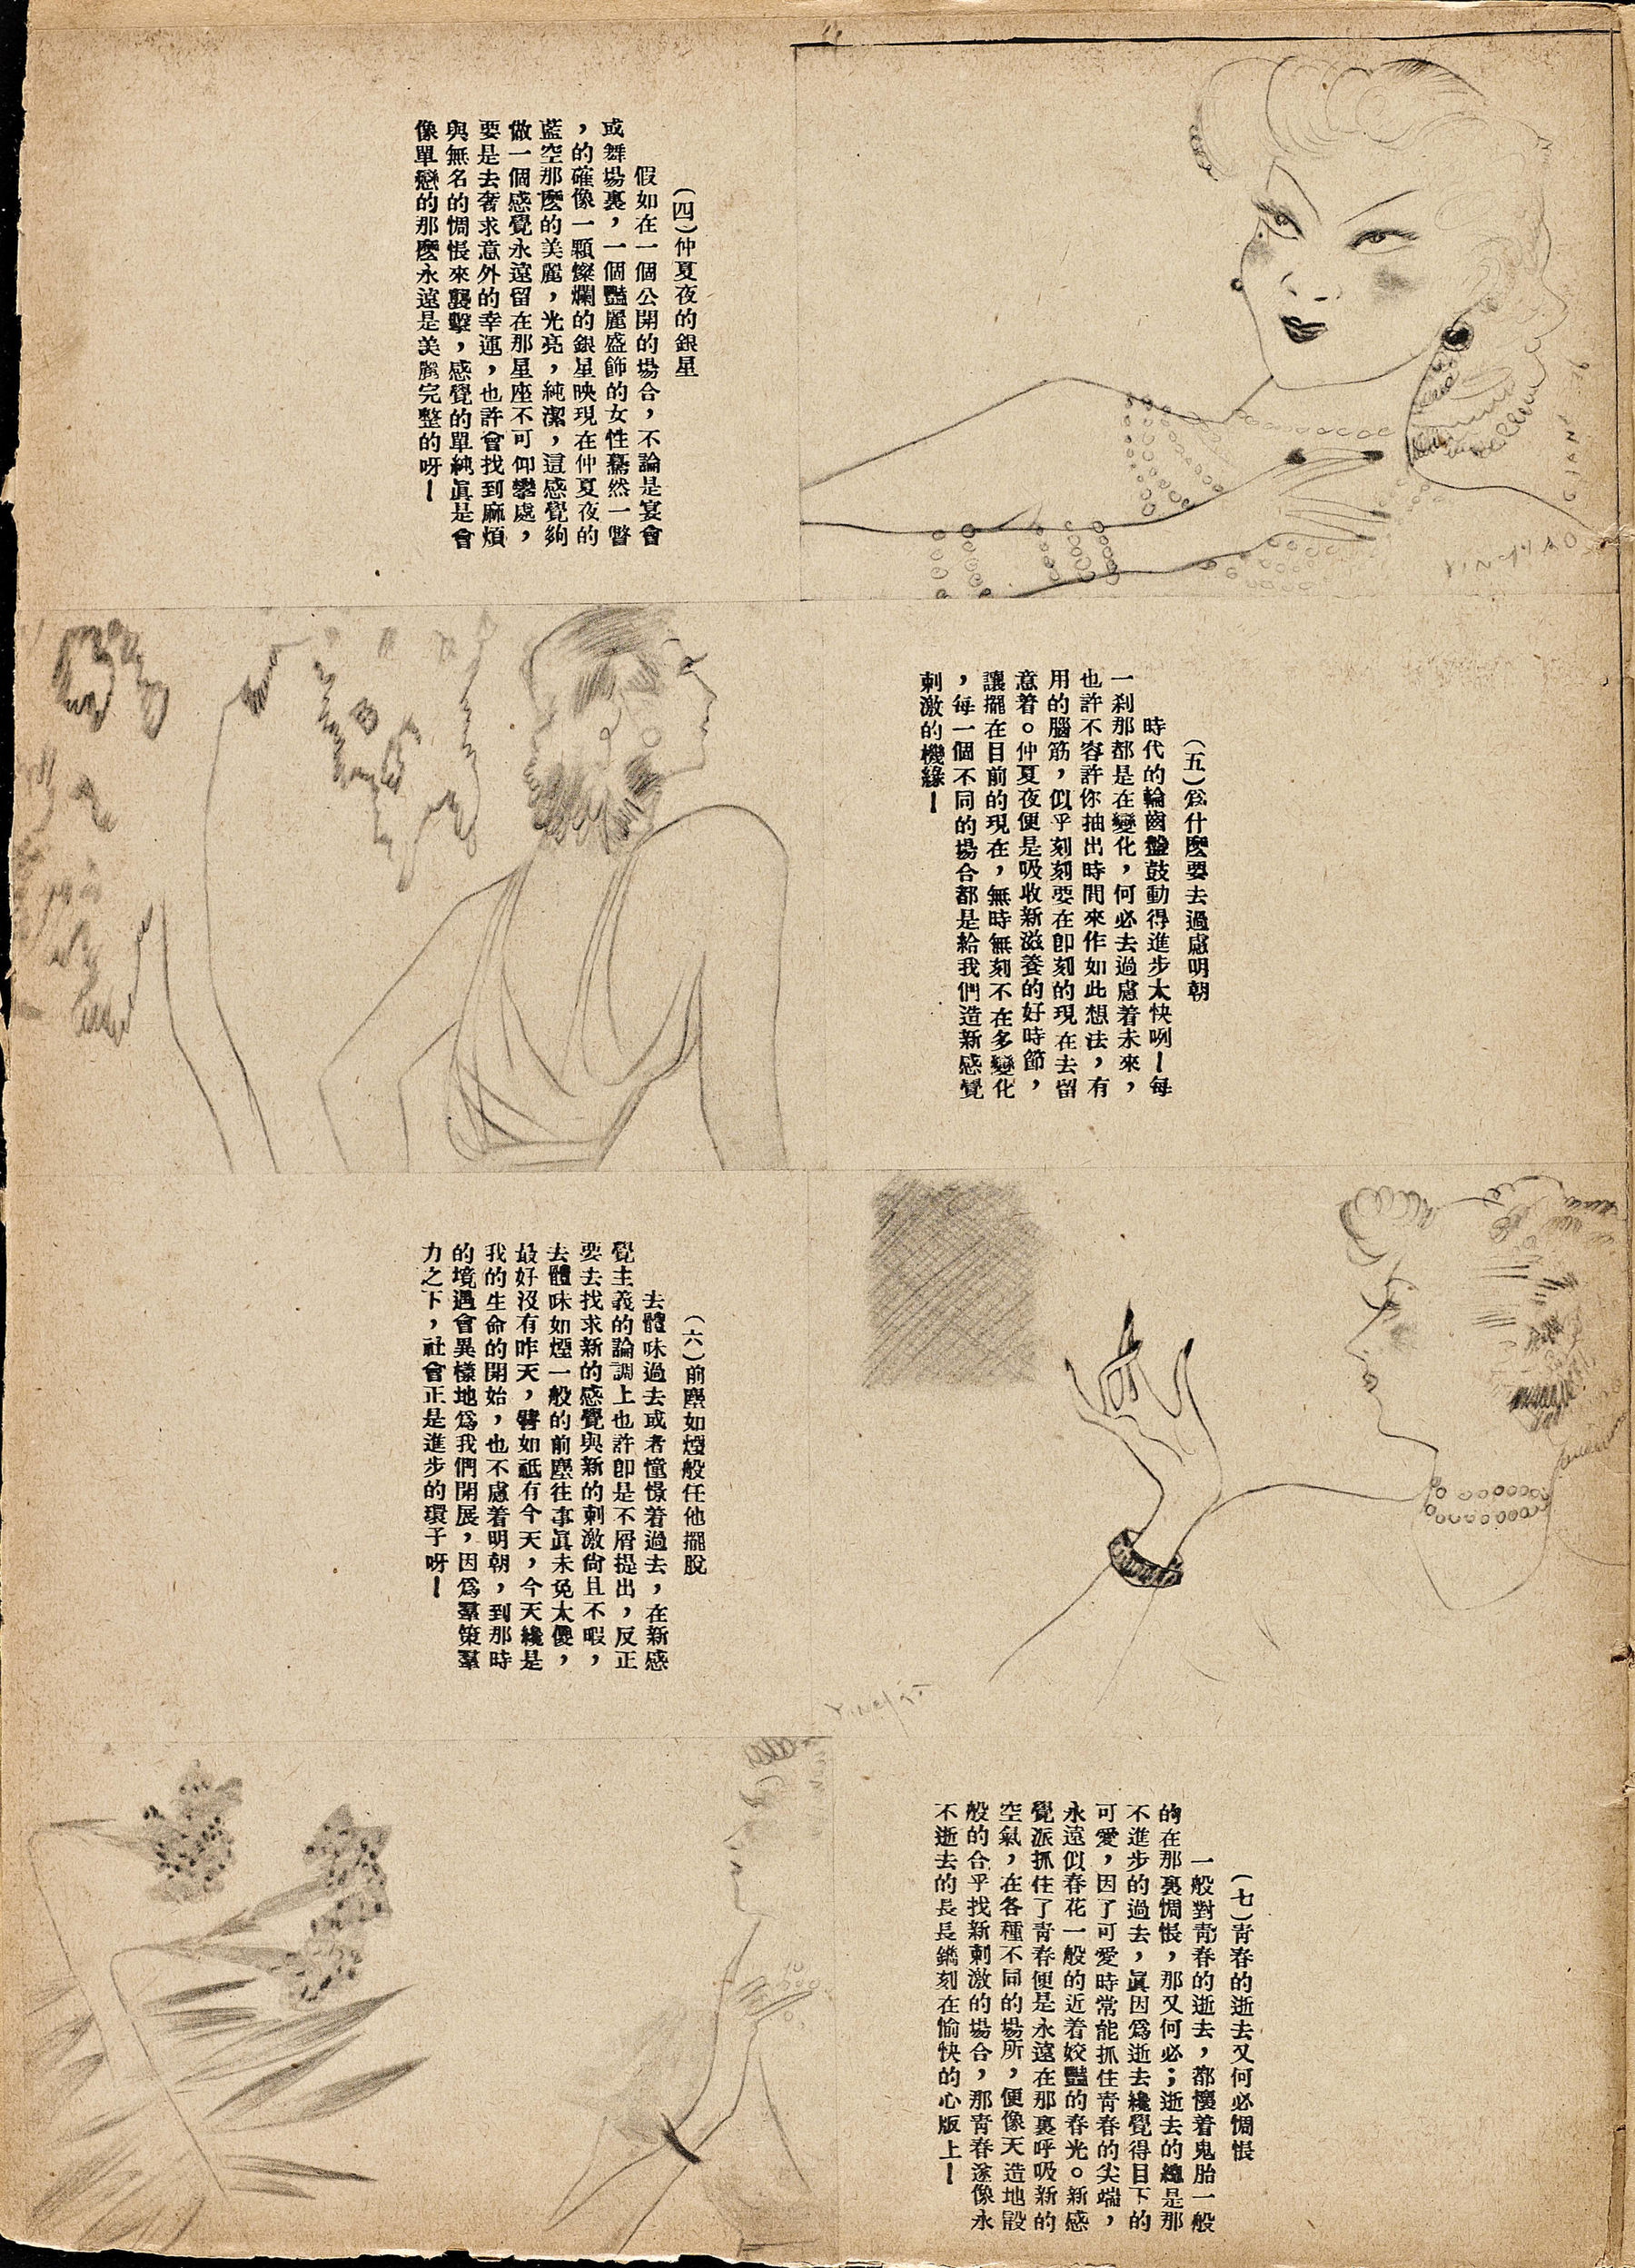 (四)仲夏夜的銀星
假如在一個公開的場合，不論是宴會
或舞場裏，一個豔麗盛飾的女性驀然一瞥
，的確像一顆燦爛的銀星映現在仲夏夜的
藍空那麽的美麗，光亮，純潔，這感覺夠
做一個感覺永遠留在那星座不可仰攀處，
要是去奢求意外的幸運，也許會找到麻煩
與無名的惆悵來襲擊，感覺的單純眞是會
像單戀的那麽永遠是美麗完整的呀！
(五)爲什麽要去過慮明朝
時代的輪齒盤鼓動得進步太快咧！每
一刹那都是在變化，何必去過慮着未來，
也許不容許你抽出時間來作如此想法，有
用的腦筋，似乎刻刻要在卽刻的現在去留
意着。仲夏夜便是吸收新滋養的好時節，
讓擺在目前的現在，無時無刻不在多變化
，每一個不同的場合都是給我們造新感覺
刺激的機緣！
(六)前塵如煙般任他擺脫
去體味過去或者憧憬着過去，在新感
覺主義的論調上也許卽是不屑提出，反正
要去找求新的感覺與新的刺激尙且不暇，
去體味如煙一般的前塵往事眞未免太傻，
最好沒有昨天，譬如祗有今天，今天纔是
我的生命的開始，也不慮着明朝，到那時
的境遇會異樣地爲我們開展，因爲羣策羣
力之下，社會正是進步的環子呀！
(七)靑春的逝去又何必惆悵
一般對靑春的逝去，都懷着鬼胎一般
的在那裏惆悵，那又何必；逝去的總是那
不進步的過去，眞因爲逝去纔覺得目下的
可愛，因了可愛時常能抓住靑春的尖端，
永遠似春花一般的近着姣豔的春光。新感
覺派抓住了靑春便是永遠在那裏呼吸新的
空氣，在各種不同的場所，便像天造地設
般的合乎找新刺激的場合，那靑春遂像永
不逝去的長長鐫刻在愉快的心版上！